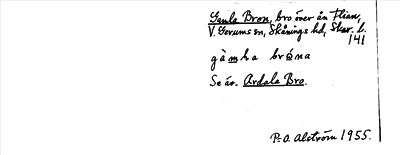 Gamla Bron, bro över ån Flian,
V. Gerums sn, Skånings hd, Skar. l.
141
gàmla bróna
Se är. Ardala Bro.
P. O. Alström 1955.